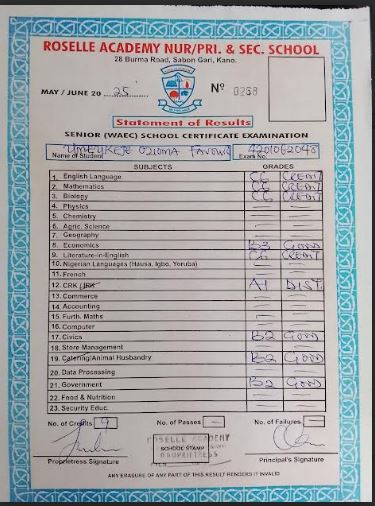 ROSELLE ACADEMY NUR/PRI. & SEC. SCHOOL
28 Burma Road, Sabon Gari, Kano.
MAY / JUNE 20 25 Nº 0268
Statement of Results
SENIOR (WAEC) SCHOOL CERTIFICATE EXAMINATION
UMEUKEJE OZIOMA FAVOUR 4201062048
Name of Student Exam No.
SUBJECTS GRADES
1. English Language C6 CREDIT
2. Mathematics C6 CREDIT
3. Biology C6 CREDIT
4. Physics
5. Chemistry
6. Agric. Science
7. Geography
8. Economics B3 GOOD
9. Literature-in-English C6 CREDIT
10. Nigerian Languages (Hausa, Igbo, Yoruba)
11. French
12. CRK/IRK A1 DIST
13. Commerce
14. Accounting
15. Furth. Maths
16. Computer
17. Civics B2 GOOD
18. Store Management
19. Catering/Animal Husbandry B2 GOOD
20. Data Processing
21. Government B2 GOOD
22. Food & Nutrition
23. Security Educ.
No. of Credits 9 No. of Passes — No. of Failures —
ROSELLE ACADEMY
SCHOOL STAMP
PROPRIETRESS
Proprietress Signature Principal's Signature
ANY ERASURE OF ANY PART OF THIS RESULT RENDERS IT INVALID